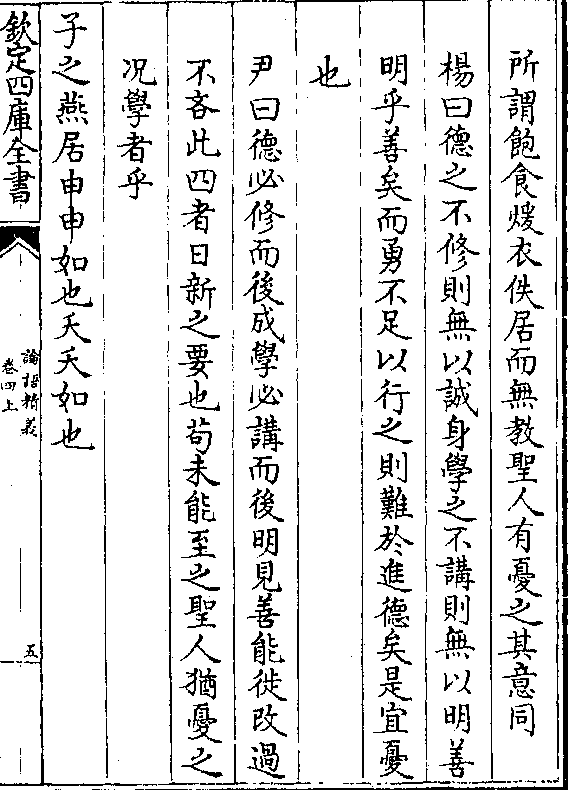 所謂飽食煖衣佚居而無教聖人有憂之其意同
楊曰德之不修則無以誠身學之不講則無以明善
明乎善矣而勇不足以行之則難於進德矣是宜憂
也
尹曰德必修而後成學必講而後明見善能徙改過
不吝此四者日新之要也茍未能至之聖人猶憂之
况學者乎
子之燕居申申如也夭夭如也
欽定四庫全書
論語精義
卷四上
五